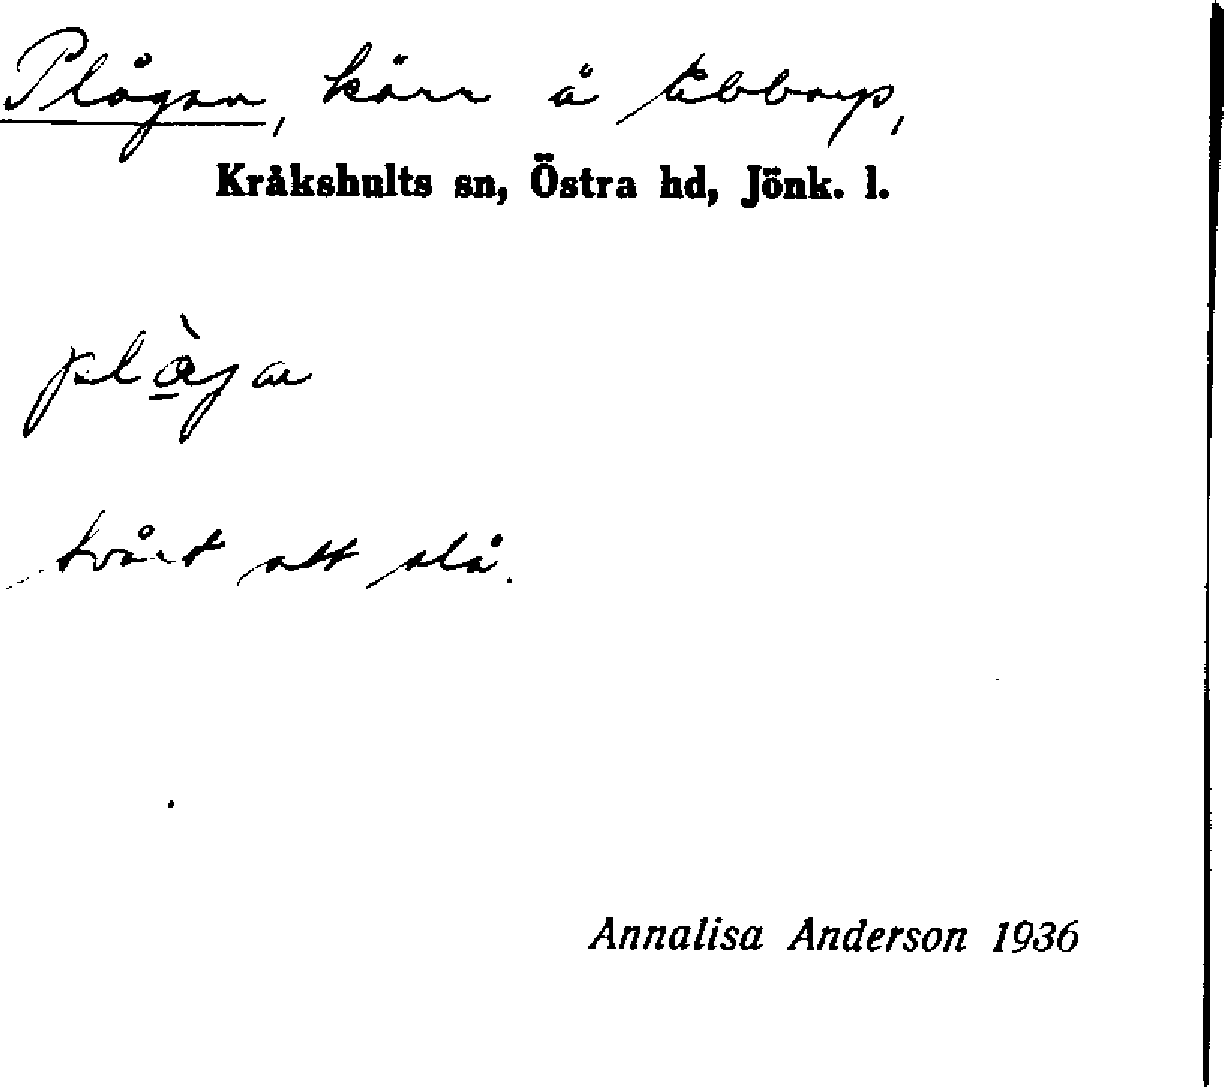 Plågan, kärr å Ebbarp,
Kråkshults sn, Östra hd, Jönk. l.
plå̀ga
tvårt att slå.
Annalisa Anderson 1936